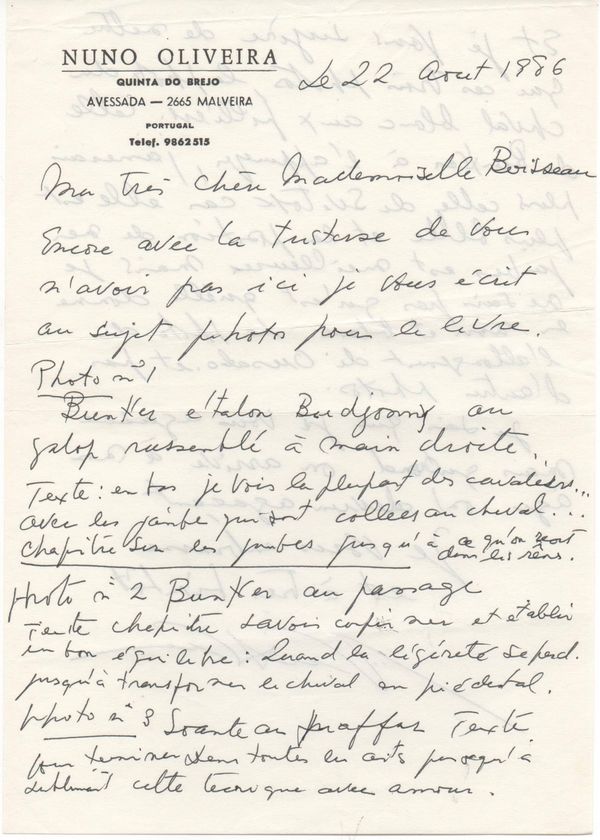 NUNO OLIVEIRA
QUINTA DO BREJO
AVESSADA — 2665 MALVEIRA
PORTUGAL
Telef. 9862515
Le 22 Aout 1986
Ma très chère Mademoiselle Boisseau
Encore avec la tristesse de vous
n'avoir pas ici je vous écrit
au sujet photos pour le livre.
Photo nº 1
Bunker étalon au
galop rassemblé à main droite.
Texte: en bas je vois la plupart des cavaliers...
avec les jambes qui sont collées au cheval...
chapitre sur les jambes jusqu'à ce qu'on
dans les rênes.
photo nº 2 Bunker au passage
Texte chapitre savoir confirmer et établir
un bon équilibre: Quand la légéreté se perd.
jusqu'à transformer le cheval en piédestal.
photo nº 3 Soante au piaffer Texte.
pour terminer dans toutes les arts
cette tecnique avec amour.